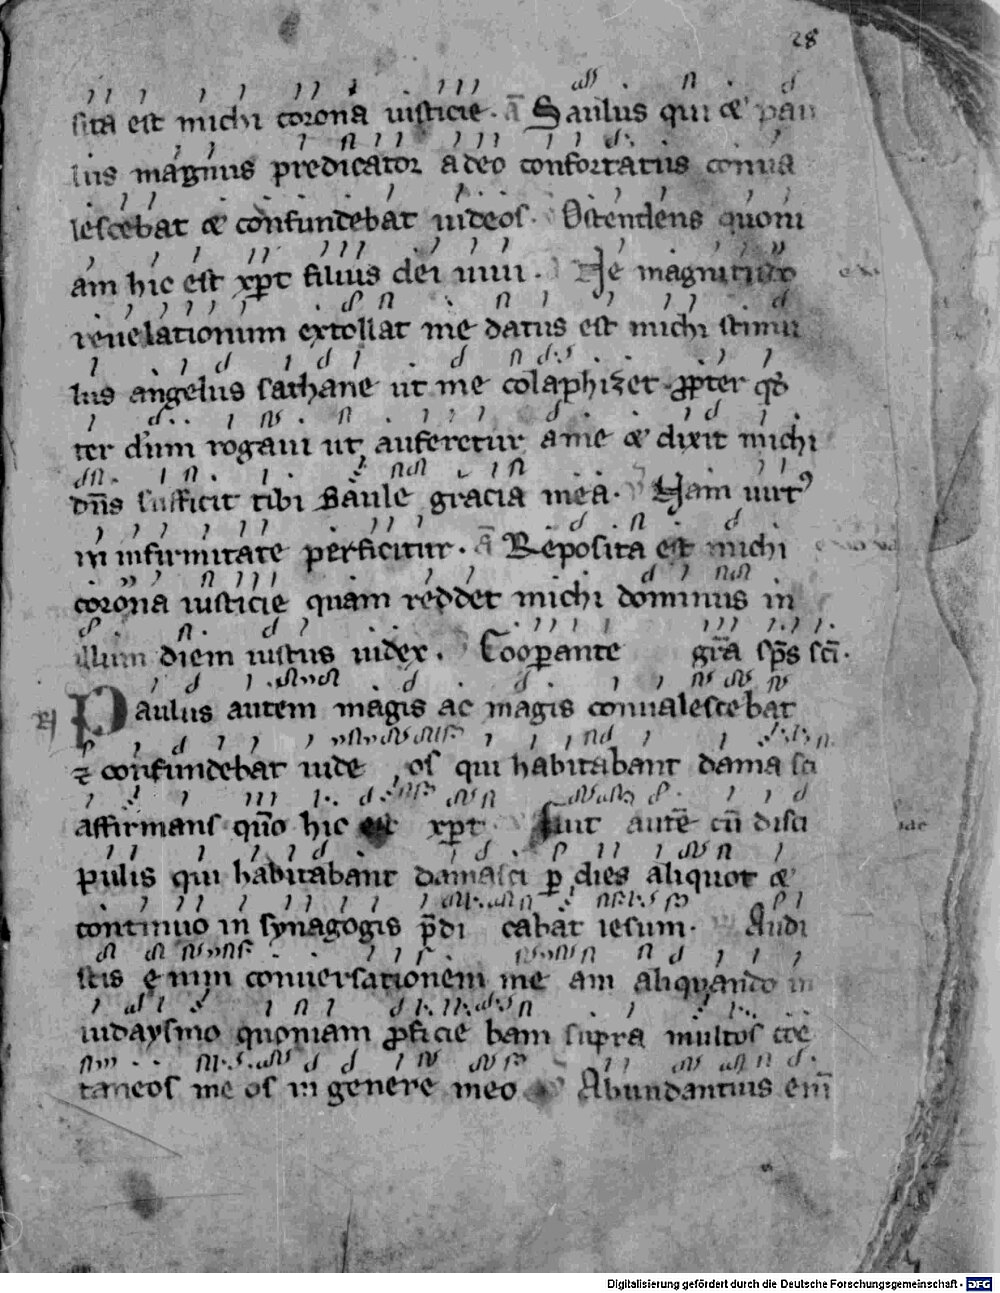 28
sita est michi corona iusticie. a̅ Saulus qui & pau
lus magnus predicator adeo confortatus conua
lescebat & confundebat iudeos. Ostendens quoni
am hic est xp̅c filius dei uiui. Ne magnitudo
reuelationum extollat me datus est michi stimu
lus angelus sathane ut me colaphizet. ꝓpter qd̅
ter d̅um rogaui ut auferetur a me & dixit michi
dn̅s sufficit tibi Saule gracia mea. Nam uirtꝰ
in infirmitate perficitur. a̅ Reposita est michi
corona iusticie quam reddet michi dominus in
illum diem iustus iudex. Cooperante gr̅a sp̅s sc̅i.
R̸ Paulus autem magis ac magis conualescebat
⁊ confundebat iude os qui habitabant dama sci
affirmans qn̅o hic est xp̅c Fuit aute̅ cu̅ disci
pulis qui habitabant damasci ꝑ dies aliquot &
continuo in synagogis p̅di cabat iesum. Audi
stis e nim conuersationem me am aliquando in
iudaysmo quoniam ꝓficie bam supra multos coe
taneos me os in genere meo V Abundantius eni̅
Digitalisierung gefördert durch die Deutsche Forschungsgemeinschaft - DFG